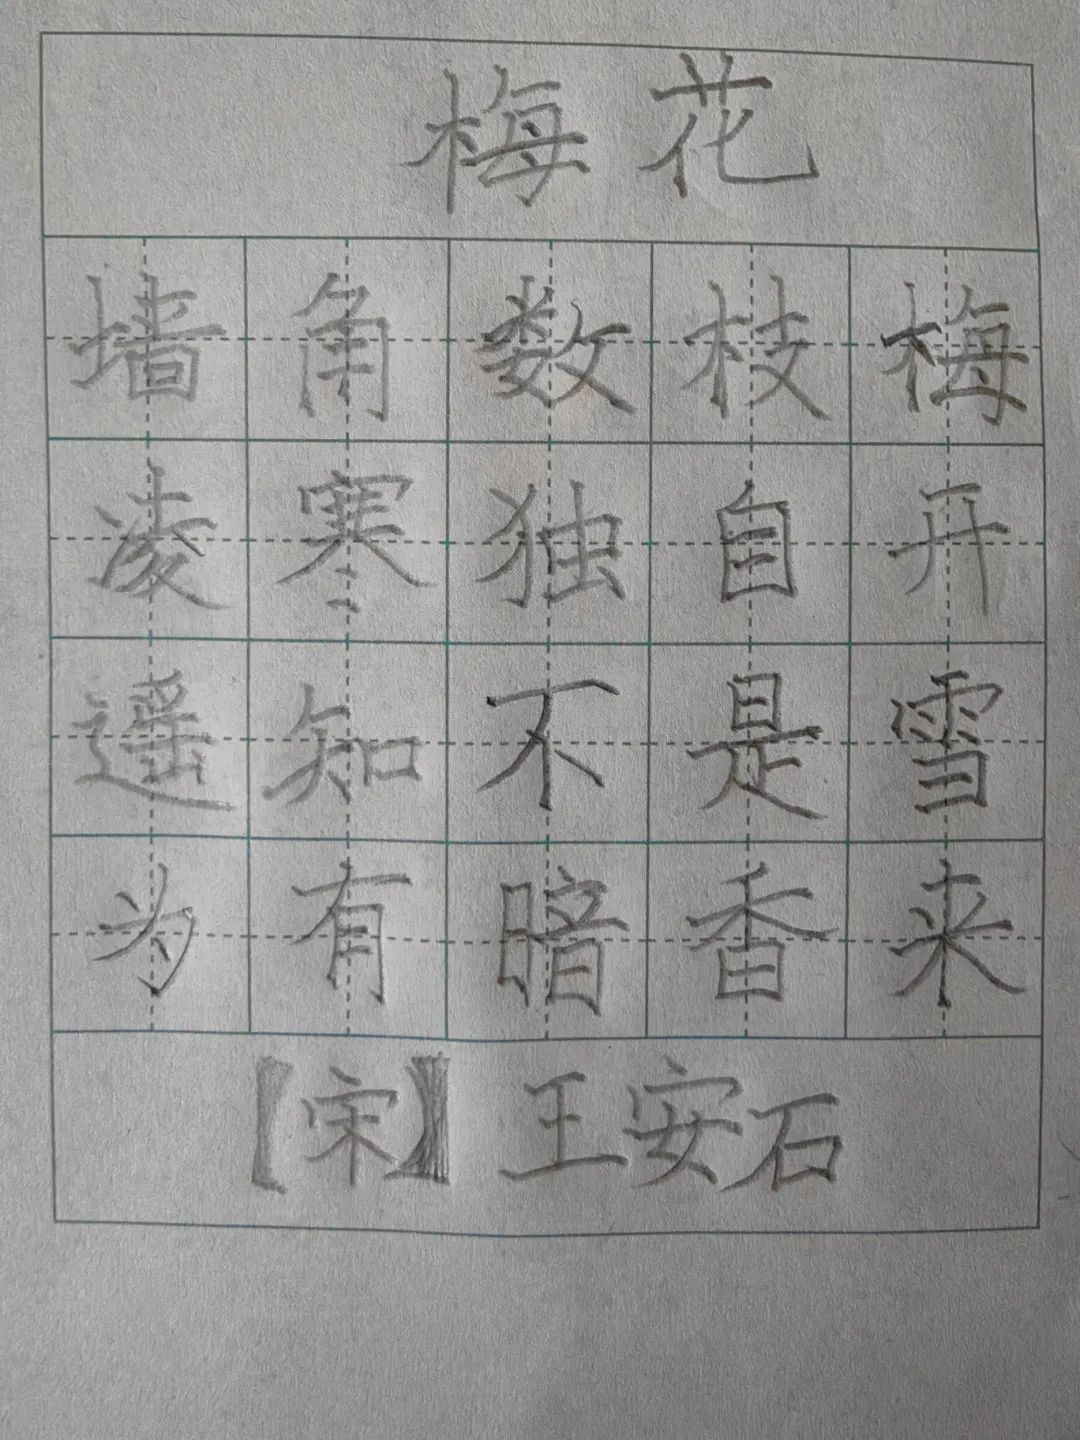 梅花
墙角数枝梅
凌寒独自开
遥知不是雪
为有暗香来
【宋】王安石